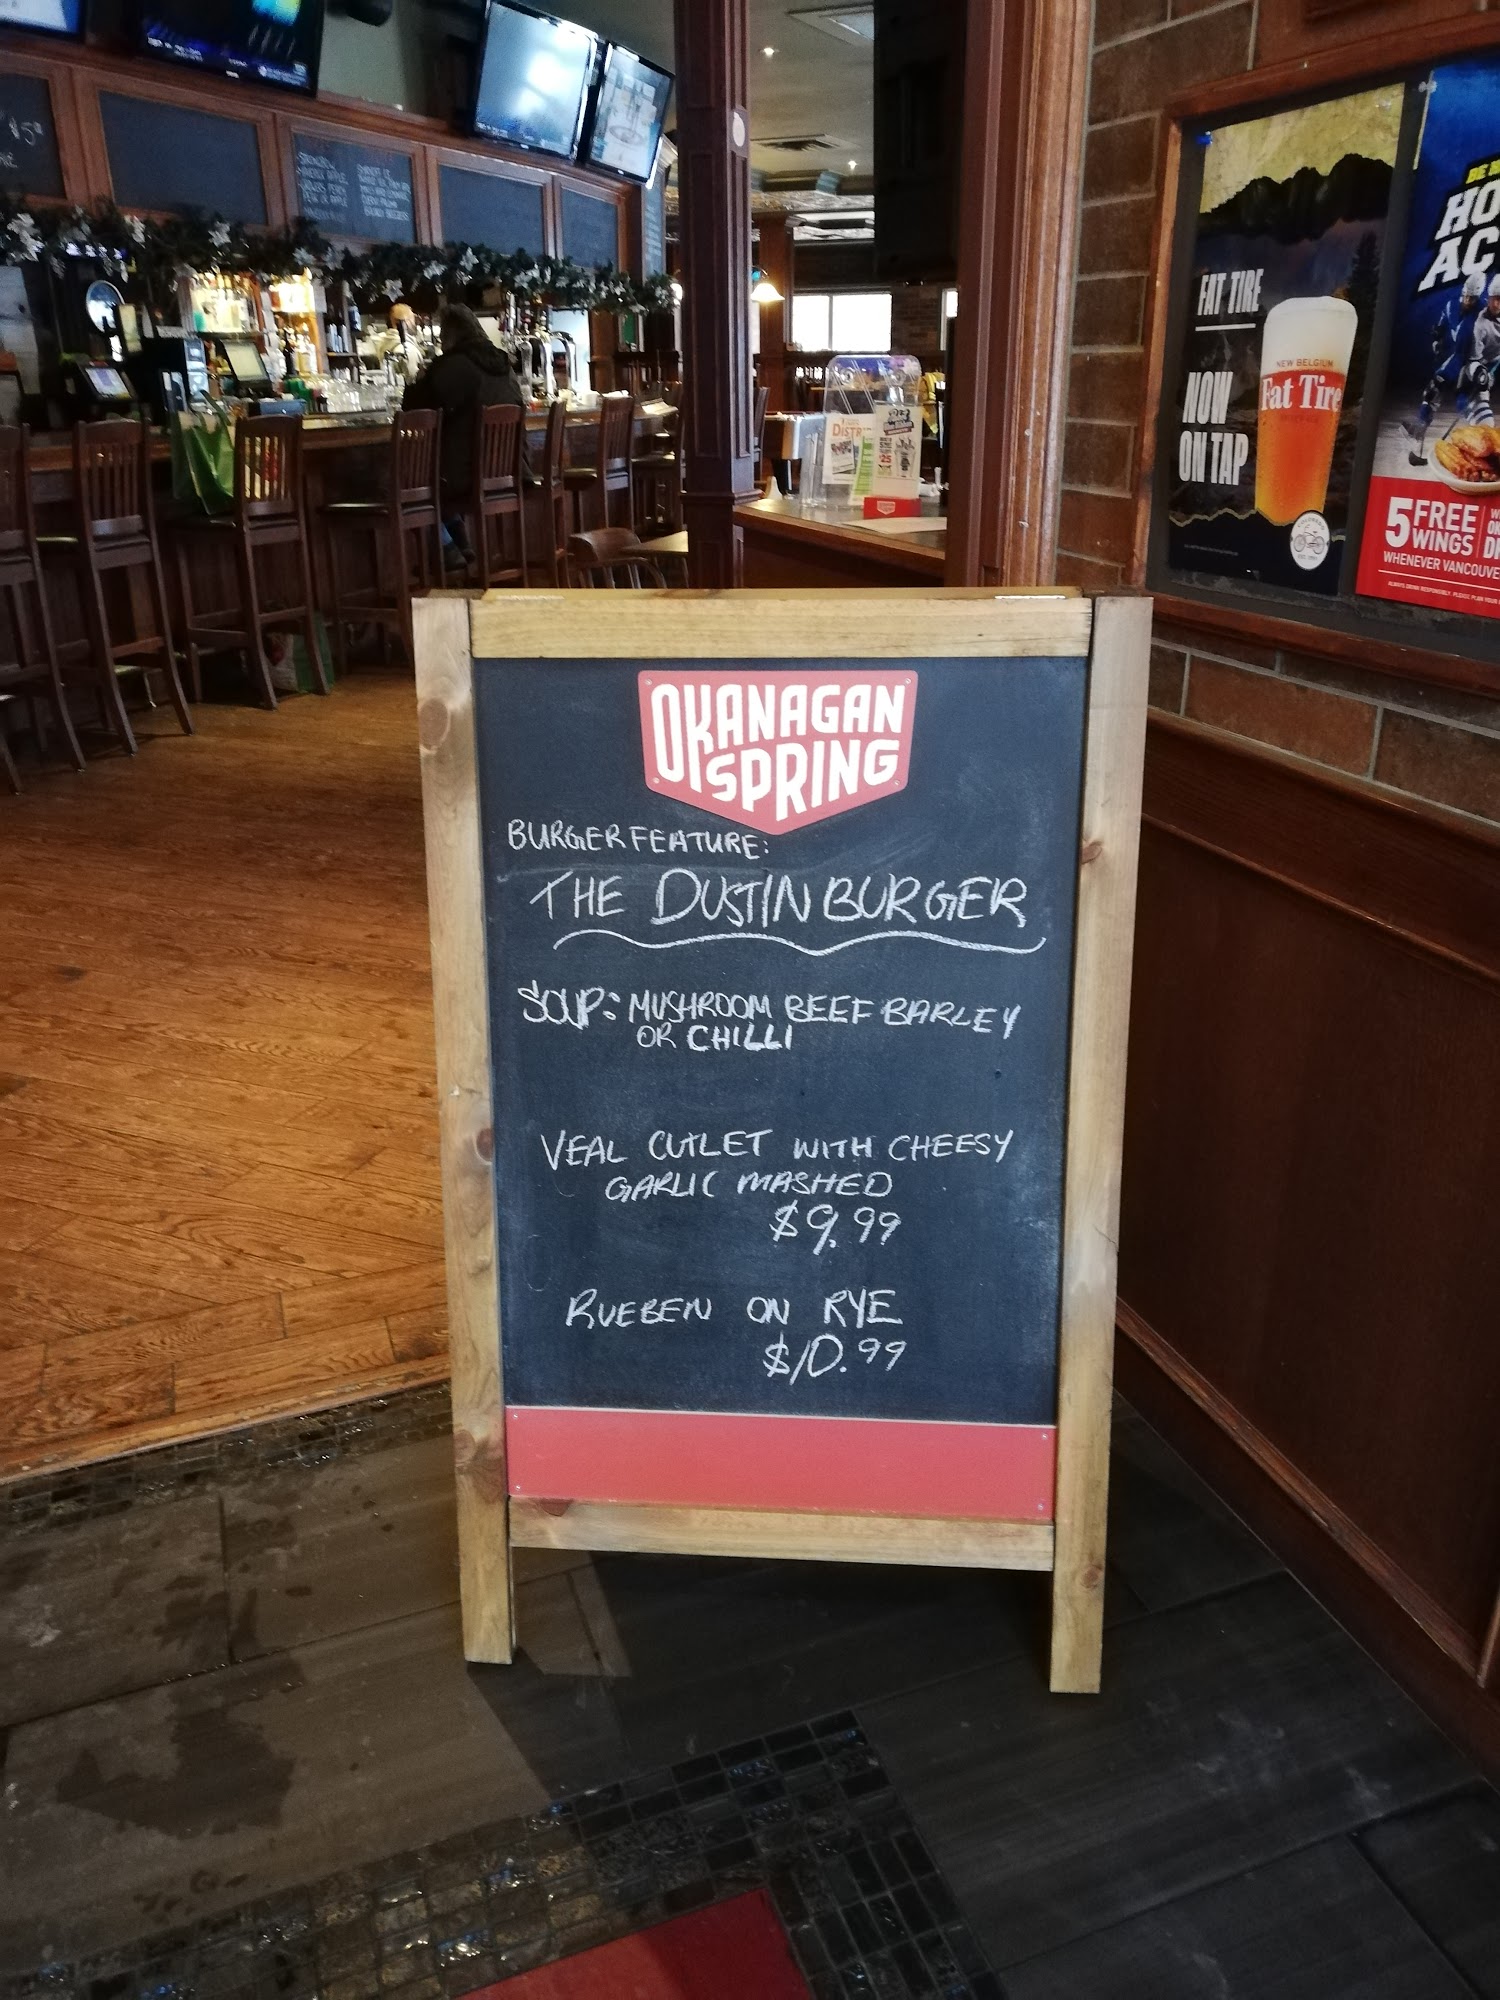 OKANAGAN
SPRING
BURGER FEATURE:
THE DUSTIN BURGER
SOUP: MUSHROOM BEEF BARLEY
OR CHILLI
VEAL CUTLET WITH CHEESY
GARLIC MASHED
$9.99
RUEBEN ON RYE
$10.99
FAT TIRE
NOW
ON TAP
NEW BELGIUM
Fat Tire
HO
AC
5 FREE
WINGS
WHENEVER VANCOUVE
DISTR